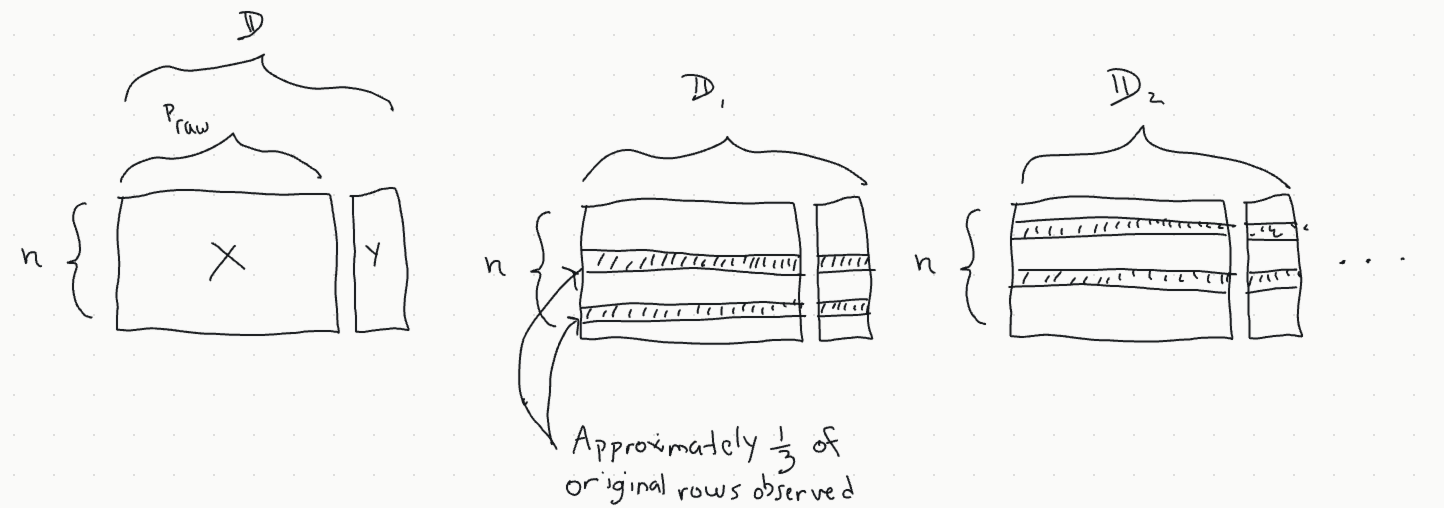 𝔻
P_raw
n
X
Y
𝔻_1
n
𝔻_2
n
. . .
Approximately 1/3 of
original rows observed